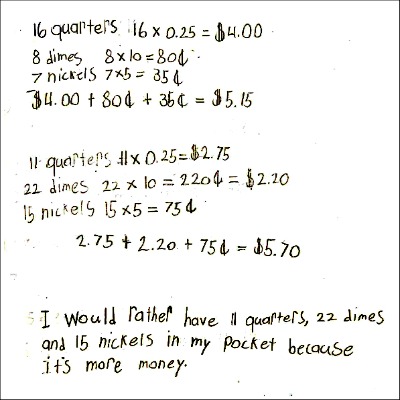 16 quarters 16 x 0.25 = $4.00
8 dimes 8 x 10 = 80¢
7 nickels 7x5 = 35¢
$4.00 + 80¢ + 35¢ = $5.15
11 quarters 11 x 0.25 = $2.75
22 dimes 22 x 10 = 220¢ = $2.20
15 nickels 15 x 5 = 75¢
2.75 + 2.20 + 75¢ = $5.70
I would rather have 11 quarters, 22 dimes
and 15 nickels in my pocket because
it's more money.